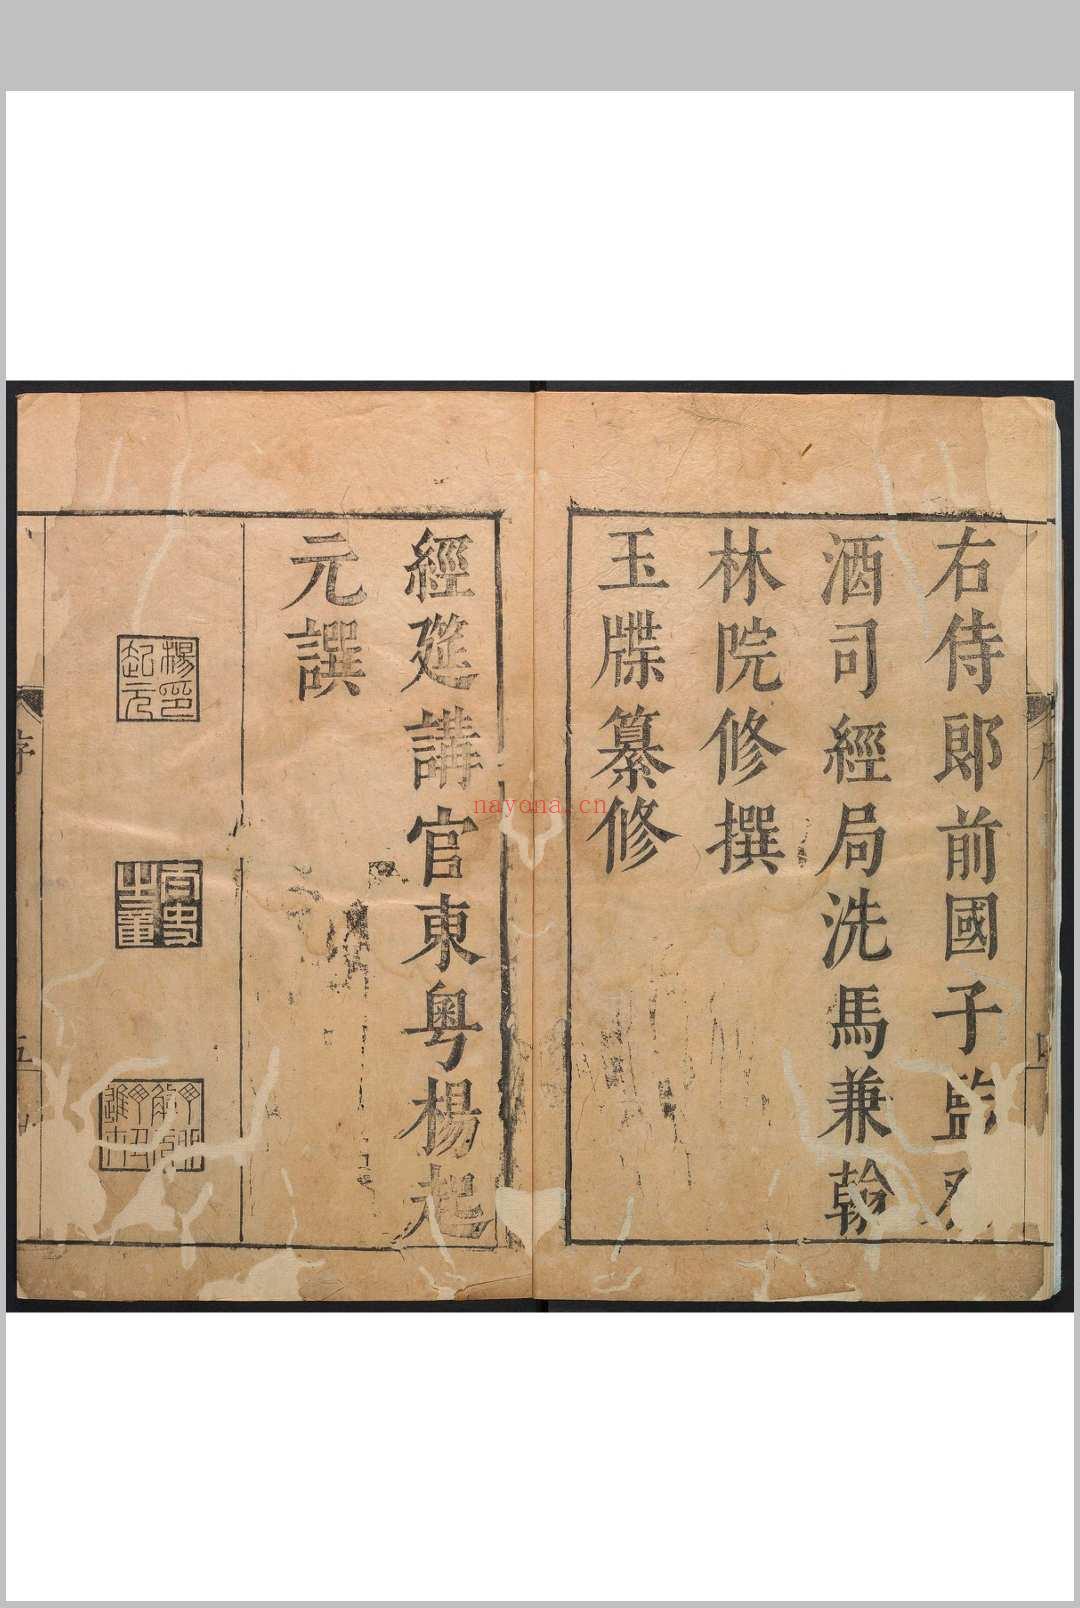 右侍郎前國子監
酒司經局洗馬兼翰
林院修撰
玉牒纂修
經筵講官東粵楊起
元譔
序
五
楊起元印
nayona.cn